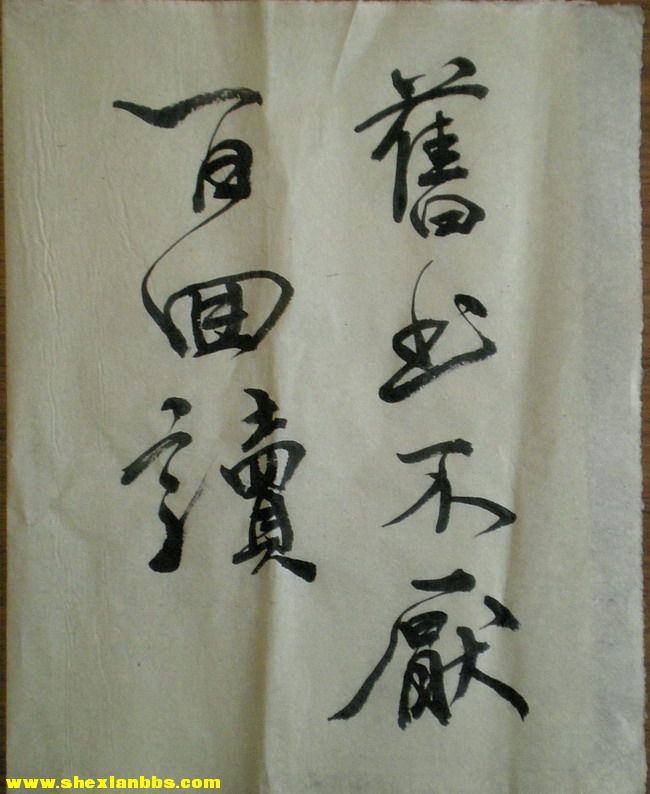 舊书不厭
百回讀
www.shexianbbs.com